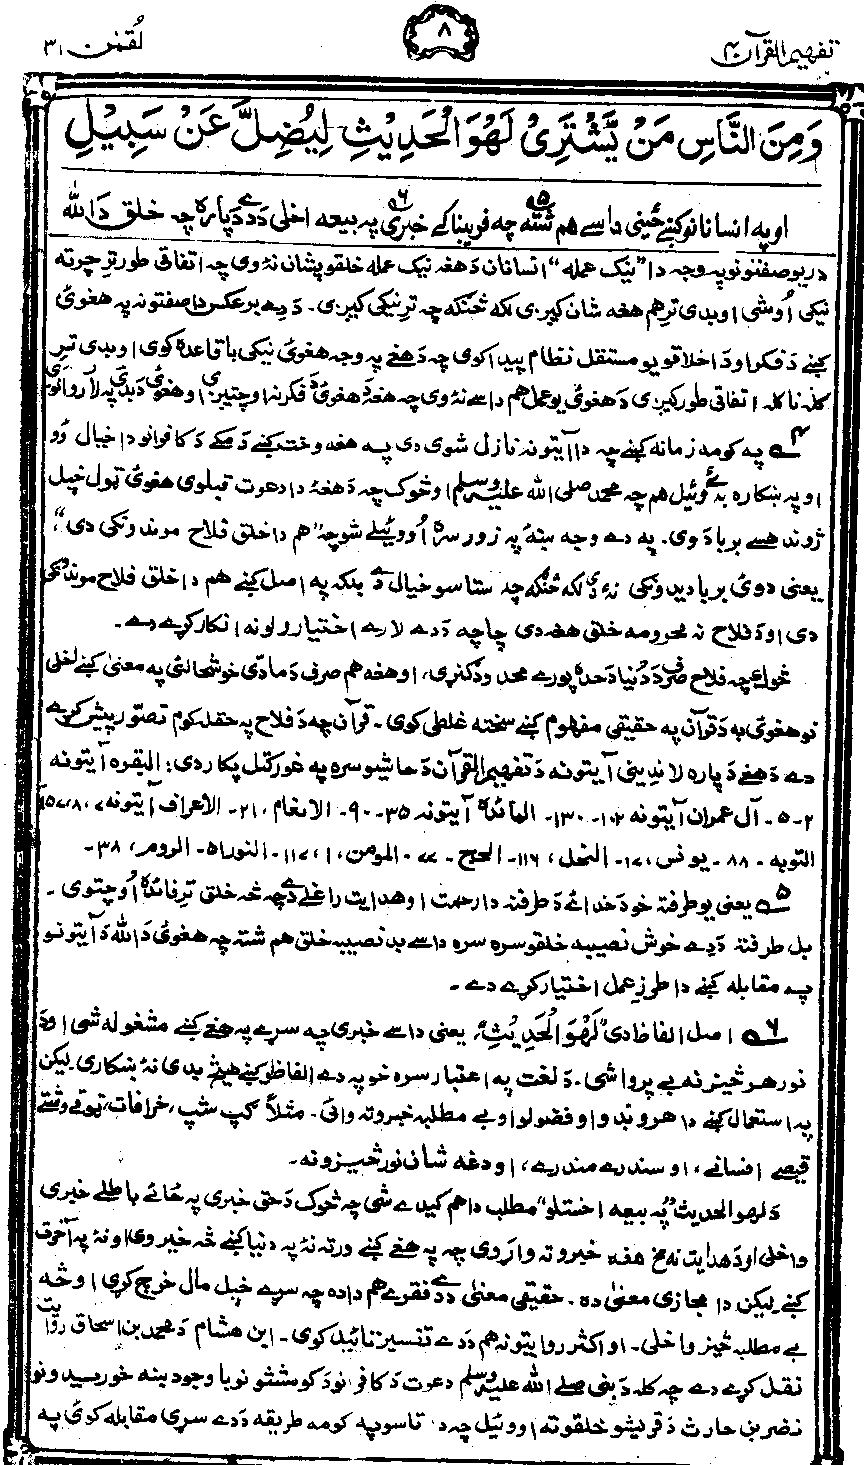 تفهیم القرآن ۴
۸
لقمٰن ۳۱
وَمِنَ النَّاسِ مَنْ يَّشْتَرِىْ لَهْوَ الْحَدِيْثِ لِيُضِلَّ عَنْ سَبِيْلِ
او په انسانانو کښے ځينی داسے هم شته ۵ چه فریبناکے خبری ۶ په بیعه اخلی دَ دے دَپاره چه خلق دَ الله
در یوصفتونو په وجه دا "نیک عمله" انسانان دَ هغه نیک عمله خلقو پشان نهٔ وی چه اتفاقی طور تر چرته
نیکی اُوشی او بدی تر هم هغه شان کیږی لکه څنګه چه تر نیکی کیږی۔ دَ دے برعکس دا صفتونه په هغوئ
کښے دَ فکر او دَ اخلاقو یو مستقل نظام پیدا کوی چه دَ هغے په وجه هغوئ نیکی باقاعده کوی او بدی تر
کله نا کله اتفاقی طور کیږی دَ هغوئ یو عمل هم داسے نهٔ وی چه هغه دَ هغوئ دَ فکر نه اوچتیږی او هغوئ دَ بدئ په لار روانوی
۴ په کومه زمانه کښے چه دا آیتونه نازل شوی دی په هغه وخت کښے دَ مکے دَ کافرانو دا خیال وو
او په ښکاره به ئے وئیل هم چه محمد صلی الله علیه وسلم او څوک چه دَ هغهٔ دا دعوت قبلوی هغوئ ټول خپل
ژوند هسے بربادوی۔ په دے وجه ښهٔ په زور سره اُووئیلے شو چه "هم دا خلق فلاح موندونکی دی"،
یعنی دوئ بربادیدونکی نهٔ دی لکه څنګه چه ستاسو خیال دے بلکه په اصل کښے هم دا خلق فلاح موندونکی
دی او دَ فلاح نه محرومه خلق هغه دی چا چه دَ دے لارے اختیارولو نه انکار کړے دے۔
څوک چه فلاح صرف دَ دُنیا دَ حده پورے محدود ګنړی، او هغه هم صرف دَ مادی خوشحالئ په معنیٰ کښے اخلی
نو هغوئ به دَ قرآن په حقیقی مفهوم کښے سخته غلطی کوی۔ قرآن چه دَ فلاح په حقله کوم تصوّر پیش کړے
دے دَ هغے دَپاره لاندینی آیتونه دَ تفهیم القرآن دَ حاشیو سره په غور کتل پکار دی: البقره آیتونه
۲-۵۔ آل عمران آیتونه ۱۰۲، ۱۳۰۔ المائده آیتونه ۳۵-۹۰۔ الانعام، ۲۱۔ الاعراف آیتونه ۷، ۸، ۱۵۷
التوبه۔ ۸۸۔ یونس، ۱۷۔ النحل، ۱۱۶۔ الحج۔ ۷۷۔ المومن، ۱، ۱۱۷۔ النور ۵۱۔ الروم، ۳۸۔
۵ یعنی یو طرفته خو دَ خدائے دَ طرفنه دا رحمت او هدایت راغلے دے چه څه خلق ترِ فائده اُوچتوی۔
بل طرفته دَ دے خوش نصیبه خلقو سره سره داسے بدنصیبه خلق هم شته چه هغوئ دَ الله دَ آیتونو
په مقابله کښے دا طرزِ عمل اختیار کړے دے۔
۶ اصل الفاظ دی "لَهْوَ الْحَدِيْثِ"، یعنی داسے خبری چه سړے په هغے کښے مشغوله شی او دَ
نور هر څیز نه بے پروا شی۔ دَ لغت په اعتبار سره خو په دے الفاظو کښے هیڅ بدی نهٔ ښکاری۔ لیکن
په استعمال کښے دا هر و بدو او فضولو او بے مطلبه خبرو ته وائی۔ مثلاً ګپ شپ، خرافات، ټوقے ټقے
قیصے افسانے، او سندرے مندرے، او دغه شان نور څیزونه۔
دَ "لهو الحدیث" په بیعه اخستلو" مطلب دا هم کیدے شی چه څوک دَ حق خبری په ځائے باطلے خبری
واخلی او دَ هدایت نه مخ هغه خبرو ته واړوی چه په هغے کښے ورته نهٔ په دنیا کښے څه خیر وی او نهٔ په آخرت
کښے لیکن دا مجازی معنیٰ ده۔ حقیقی معنیٰ دَ دے فقرے هم دا ده چه سړے خپل مال خرچ کړی او څه
بے مطلبه څیز واخلی۔ او اکثر روایتونه هم دَ دے تفسیر تائید کوی۔ ابن هشام دَ محمد بن اسحاق روایت
نقل کړے دے چه کله دَ نبی صلی الله علیه وسلم دعوت دَ کافرانو دَ کوششونو باوجود ښه خوریدو نو
نضر بن حارث دَ قریشو خلقو ته اووئیل چه دَ تاسو په کومه طریقه دَ دے سړی مقابله کوئ په